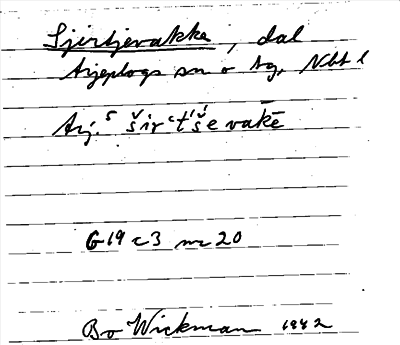 Sjirtjevakke, dal
Arjeplogs sn o tg, Nbt l
Arj. ⁵ šir‘t́š́e vakē
G19 c3 nr 20
Bo Wickman 1942